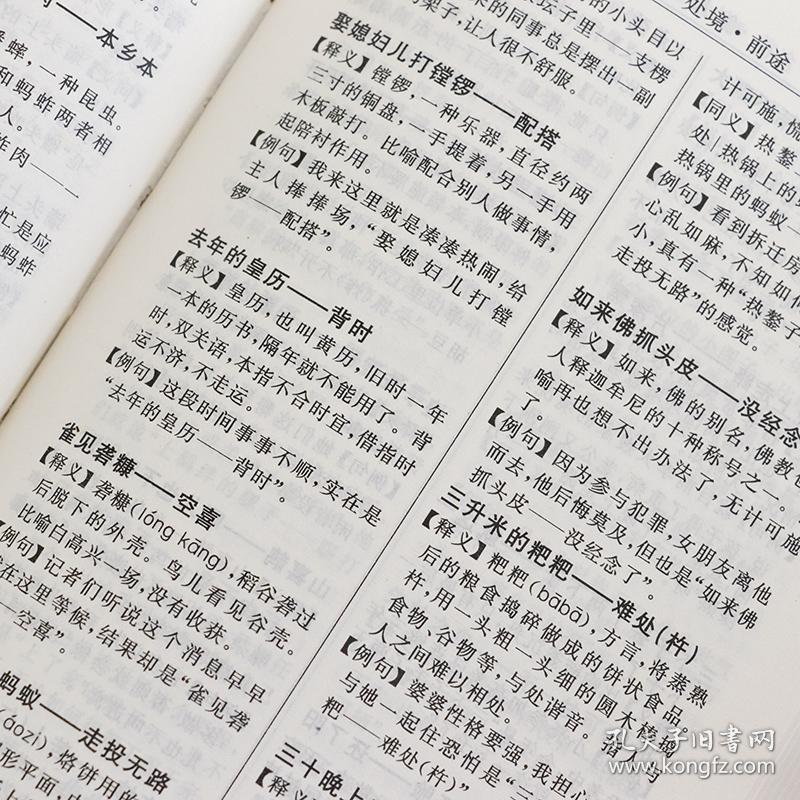 一本乡本
蟀，一种昆虫。
和蚂蚱两者相
人。
蚱肉——
忙是应
蚂蚱
的小头目以
坛子里——支楞
来的同事总是摆出一副
架子，让人很不舒服。
娶媳妇儿打镗锣——配搭
【释义】镗锣，一种乐器，直径约两
三寸的铜盘，一手提着，另一手用
木板敲打。比喻配合别人做事情，
起陪衬作用。
【例句】我来这里就是凑凑热闹，给
主人捧捧场，“娶媳妇儿打镗
锣——配搭”。
去年的皇历——背时
【释义】皇历，也叫黄历，旧时一年
一本的历书，隔年就不能用了。背
时，双关语，本指不合时宜，借指时
运不济，不走运。
【例句】这段时间事事不顺，实在是
“去年的皇历——背时”。
雀见砻糠——空喜
【释义】砻糠(lóng kāng)，稻谷砻过
后脱下的外壳。鸟儿看见谷壳。
比喻白高兴一场，没有收获。
【例句】记者们听说这个消息早早
在这里等候，结果却是“雀见砻
—空喜”。
蚂蚁——走投无路
(áozi)，烙饼用的
形平面，
处境·前途
计可施，慌
【同义】热鏊
处|热锅上的
热锅里的蚂蚁—
【例句】看到拆迁房
心乱如麻，不知如何
小，真有一种“热鏊子
走投无路”的感觉。
如来佛抓头皮——没经念
【释义】如来，佛的别名，佛教也
人释迦牟尼的十种称号之一。
喻再也想不出办法了，无计可施
了。
【例句】因为参与犯罪，女朋友离他
而去，他后悔莫及，但也是“如来佛
抓头皮——没经念了”。
三升米的粑粑——难处(杵)
【释义】粑粑(bābā)，方言，将蒸熟
后的粮食捣碎做成的饼状食品。
杵，用一头粗一头细的圆木棒捣
食物、谷物等，与处谐音。指
人之间难以相处。
【例句】婆婆性格要强，我担心
与她一起住恐怕是“三
粑——难处(杵)”
三十晚上
【释义】
孔夫子旧书网
www.kongfz.com